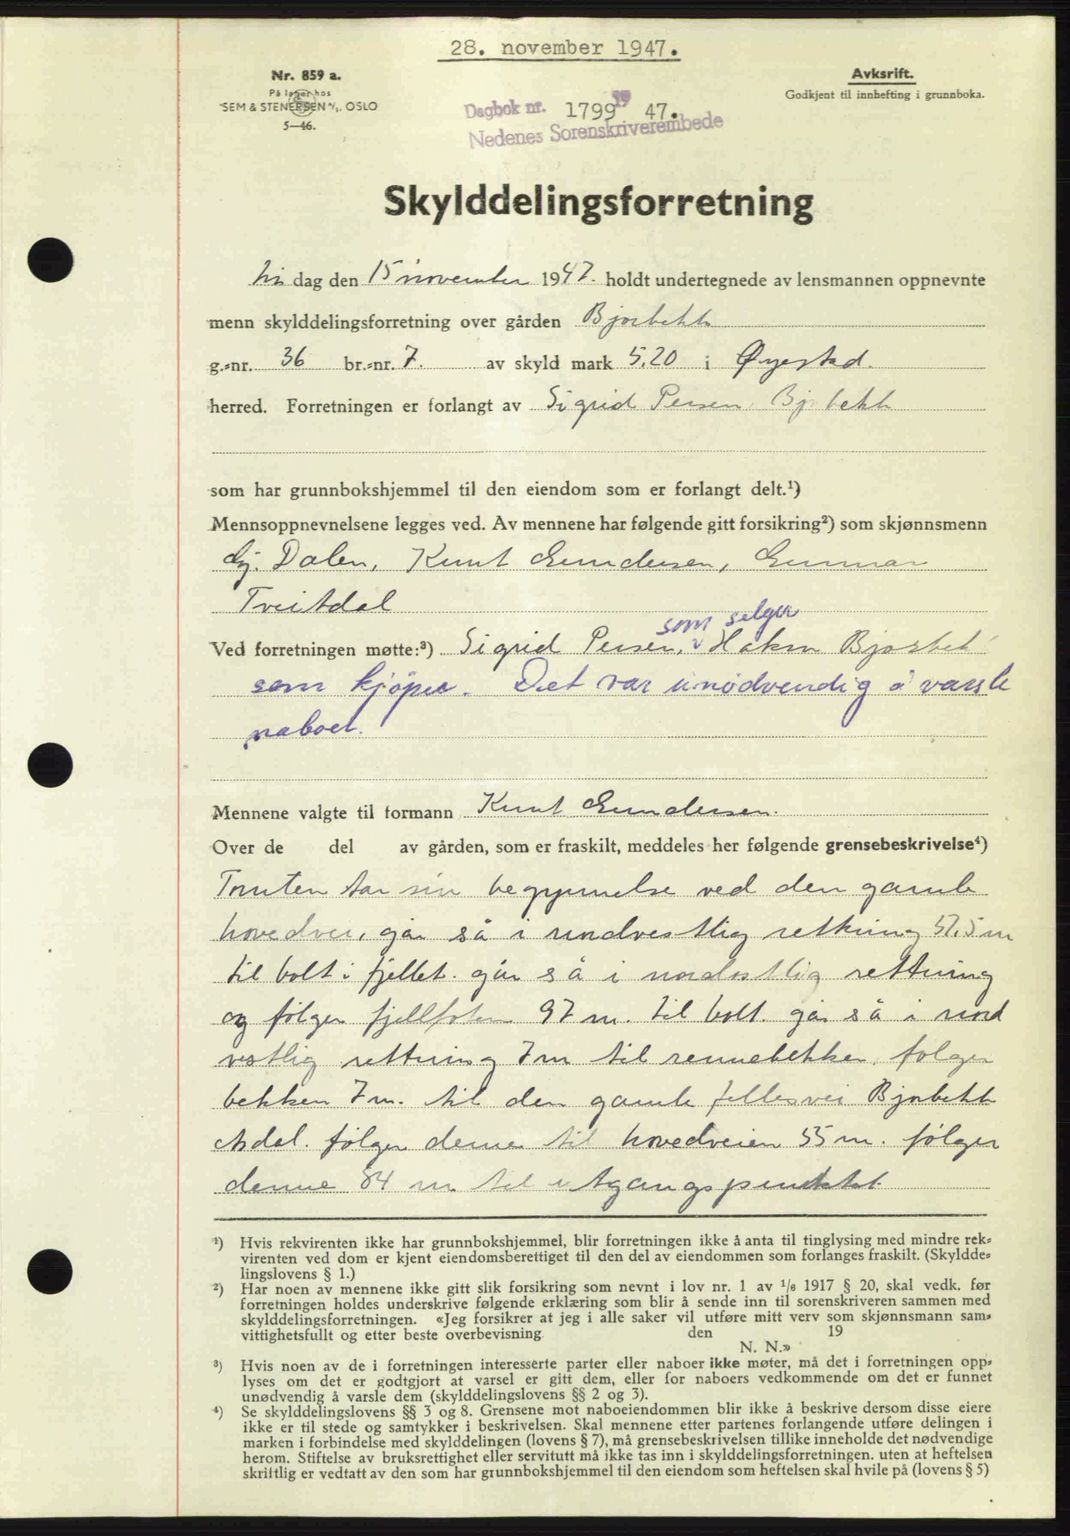 28. november 1947.
Nr. 859 a.
På lager hos
SEM & STENERSEN A/S. OSLO
5—46.
Avskrift.
Godkjent til innhefting i grunnboka.
Dagbok nr. 1799 19 47.
Nedenes Sorenskriverembede
Skylddelingsforretning
dag den 15 november 1947. holdt undertegnede av lensmannen oppnevnte
menn skylddelingsforretning over gården Bjorbekk
g.=nr. 36 br.=nr. 7. av skyld mark 5,20 i Øyestad.
herred. Forretningen er forlangt av Sigrid Persen, Bjorbekk
som har grunnbokshjemmel til den eiendom som er forlangt delt.¹)
Mennsoppnevnelsene legges ved. Av mennene har følgende gitt forsikring²) som skjønnsmenn
Dalen, Knut Gundersen, Gunnar
Treitdal
som selger
Ved forretningen møtte:³) Sigrid Persen, Håkon Bjorbek
som kjøper. Det var unødvendig å varsle
naboer.
Mennene valgte til formann Knut Gundersen.
Over de del av gården, som er fraskilt, meddeles her følgende grensebeskrivelse⁴)
Tomten tar sin begynnelse ved den gamle
hovedvei, går så i nordvestlig retning 57,5 m
til bolt i fjellet. går så i nordostlig rettning
og følger fjellfoten 97 m. til bolt. går så i nord
vestlig rettning 7 m til rennebekken, følger
bekken 7 m. til den gamle fellesvei Bjorbekk
følger denne til hovedveien 55 m. følger
denne 84 m til utgangspunktet
¹) Hvis rekvirenten ikke har grunnbokshjemmel, blir forretningen ikke å anta til tinglysing med mindre rek=
virenten ved dom er kjent eiendomsberettiget til den del av eiendommen som forlanges fraskilt. (Skyldde=
lingslovens § 1.)
²) Har noen av mennene ikke gitt slik forsikring som nevnt i lov nr. 1 av ¹/₆ 1917 § 20, skal vedk. før
forretningen holdes underskrive følgende erklæring som blir å sende inn til sorenskriveren sammen med
skylddelingsforretningen. «Jeg forsikrer at jeg i alle saker vil utføre mitt verv som skjønnsmann sam=
vittighetsfullt og etter beste overbevisning den 19
N. N.»
³) Hvis noen av de i forretningen interesserte parter eller naboer ikke møter, må det i forretningen opp=
lyses om det er godtgjort at varsel er gitt dem, eller for naboers vedkommende om det er funnet
unødvendig å varsle dem (skylddelingslovens §§ 2 og 3).
⁴) Se skylddelingslovens §§ 3 og 8. Grensene mot naboeiendommen blir ikke å beskrive dersom disse eiere
ikke er til stede og samtykker i beskrivelsen. Skal mennene etter partenes forlangende utføre delingen i
marken i forbindelse med skylddelingen (lovens § 7), må grensebeskrivelsen tillike inneholde det nødvendige
herom. Stiftelse av bruksrettighet eller servitutt må ikke tas inn i skylddelingsforretningen. uten at heftelsen
skriftlig er vedtatt av den som har grunnbokshjemmel til den eiendom som heftelsen skal hvile på (lovens § 5)